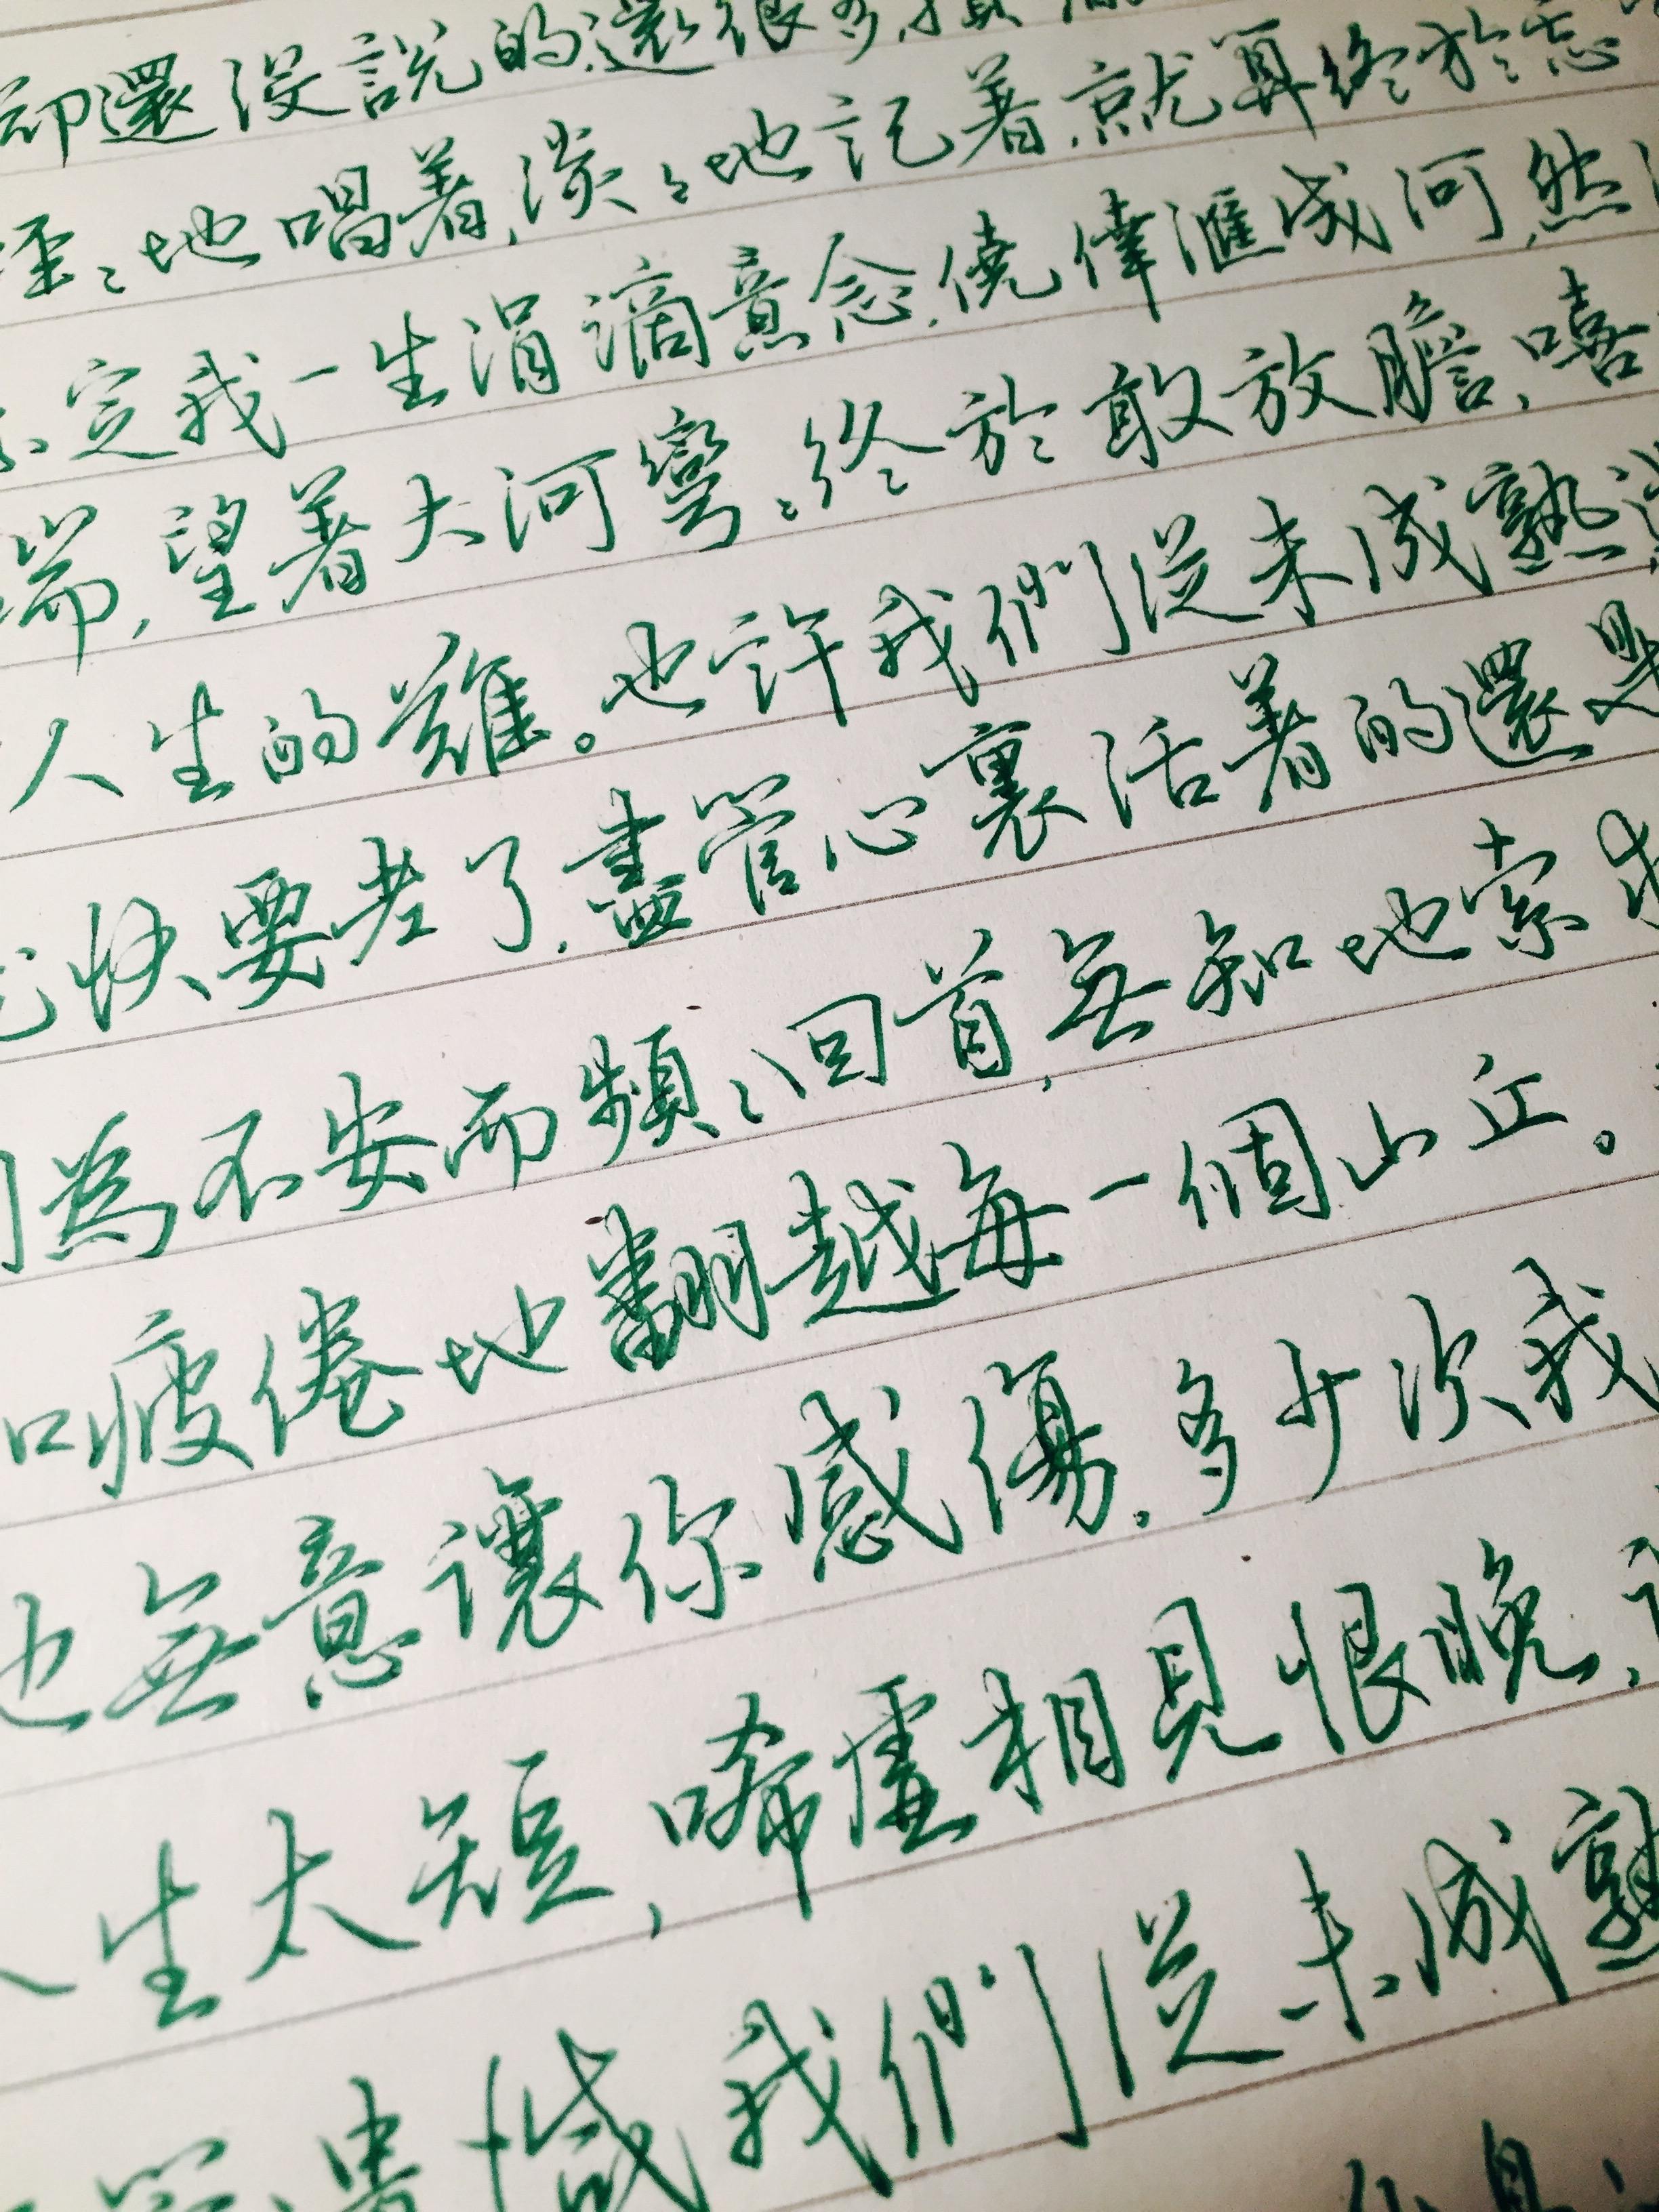 卻還沒說的還很多,
輕々地唱着,淡々地記着,就算終於忘
定我一生涓滴意念,僥倖匯成河,然
端,望着大河彎々,終於敢放膽,嘻
人生的難。也許我們從未成熟,
快要老了,盡管心裏活着的還是
為不安而頻々回首,無知地索求
疲倦地翻越每一個山丘。
也無意讓你感傷,多少次我
人生太短,唏噓相見恨晚,
遺憾我們從未成熟